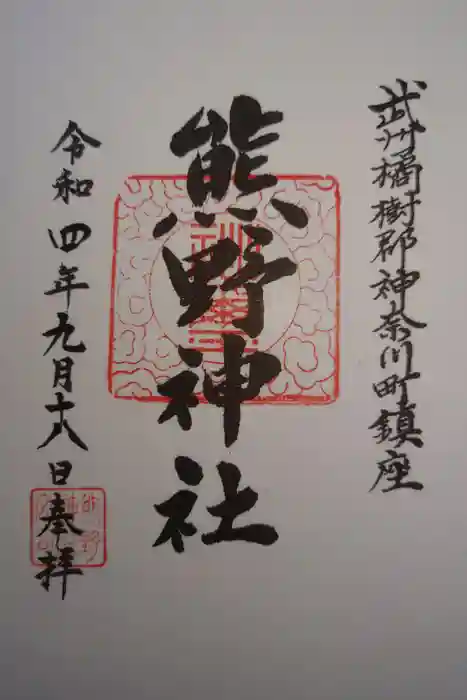 武州橘樹郡神奈川町鎮座
熊野神社
令和四年九月十八日奉拝